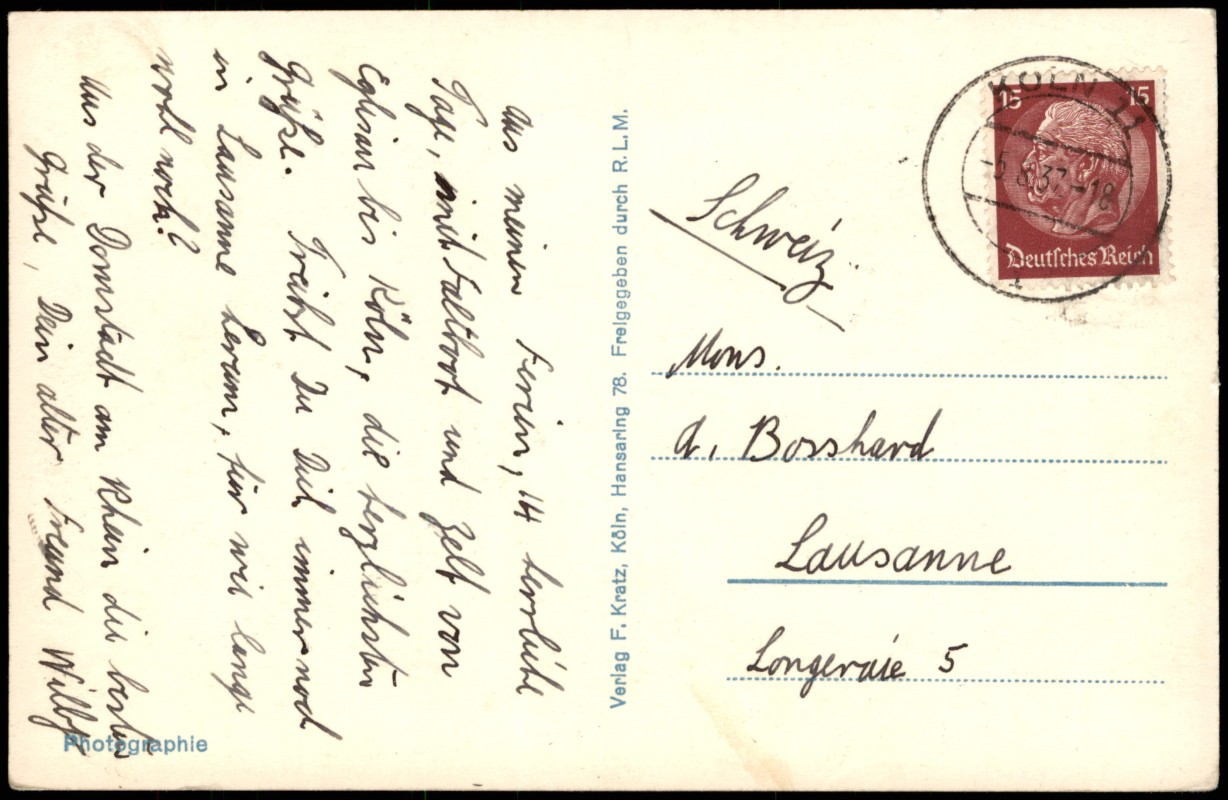 Aus meinen Ferien, 14 herrliche
Tage, mit Faltboot und Zelt von
Eglisau bis Köln, die herzlichsten
Grüße. Treibst Du Dich immer noch
in Lausanne herum, für wie lange
wohl noch?
Aus der Domstadt am Rhein die besten
Grüße, Dein alter Freund Willy
Photographie
Verlag F. Kratz, Köln, Hansaring 78. Freigegeben durch R.L.M.
KÖLN 11
-5.8.37-18
15 15
Deutsches Reich
Schweiz
Mons.
A. Bosshard
Lausanne
Longeraie 5